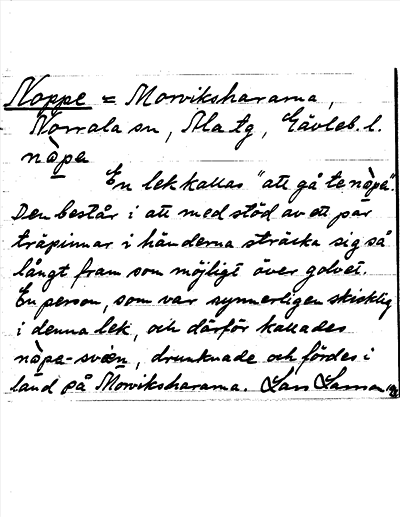 Noppe = Morvikshararna,
Norrala sn, Ala tg, Gävleb. l.
nòpa
En lek kallas "att gå te nòpa".
Den består i att med stöd av ett par
träpinnar i händerna sträcka sig så
långt fram som möjligt över golvet.
En person, som var synnerligen skicklig
i denna lek, och därför kallades
nòpa-svæn, drunknade och fördes i
land på Morvikshararna. Lars Larsson